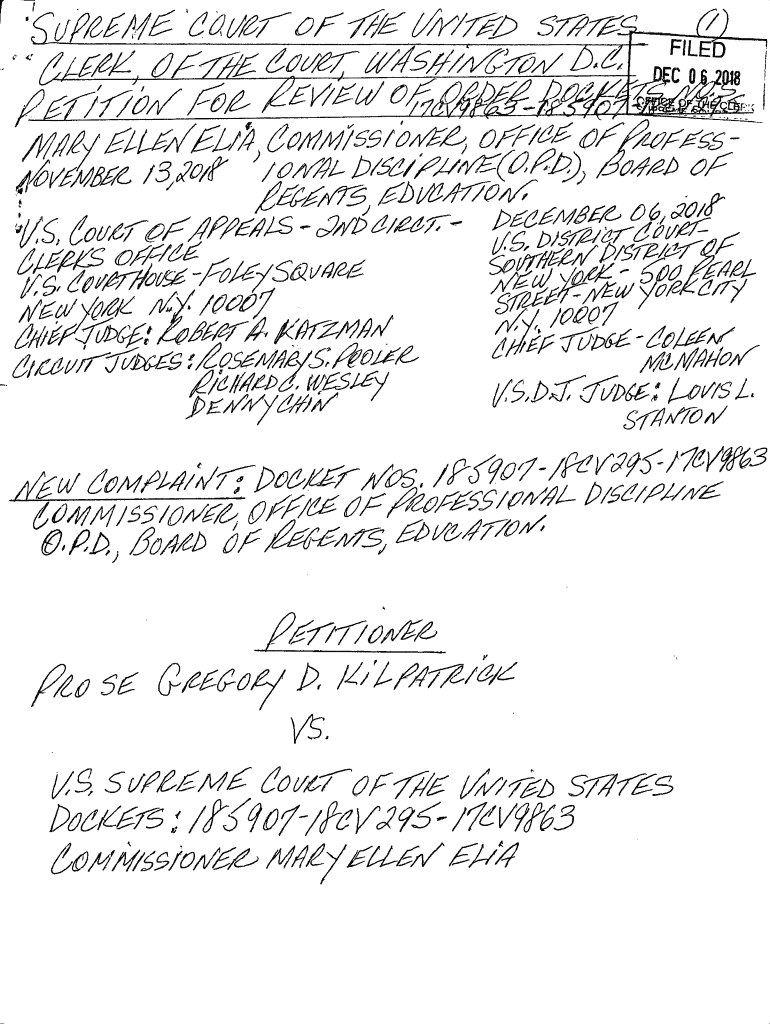 SUPREME COURT OF THE UNITED STATES
(1)
CLERK, OF THE COURT, WASHINGTON D.C.
FILED
DEC 06 2018
OFFICE OF THE CLERK
PETITION FOR REVIEW OF ORDER DOCKETS NOS.
17CV9863-185907-
MARY ELLEN ELIA, COMMISSIONER, OFFICE OF PROFESS-
NOVEMBER 13, 2018 IONAL DISCIPLINE (O.P.D.), BOARD OF
REGENTS, EDUCATION.
U.S. COURT OF APPEALS - 2ND CIRCT. -
CLERKS OFFICE
U.S. COURTHOUSE - FOLEY SQUARE
NEW YORK N.Y. 10007
CHIEF JUDGE: ROBERT A. KATZMAN
CIRCUIT JUDGES: ROSEMARY S. POOLER
RICHARD C. WESLEY
DENNY CHIN
DECEMBER 06, 2018
U.S. DISTRICT COURT-
SOUTHERN DISTRICT OF
NEW YORK - 500 PEARL
STREET - NEW YORK CITY
N.Y. 10007
CHIEF JUDGE - COLEEN
MCMAHON
U.S.D.J. JUDGE: LOUIS L.
STANTON
NEW COMPLAINT: DOCKET NOS. 185907-18CV295-17CV9863
COMMISSIONER, OFFICE OF PROFESSIONAL DISCIPLINE
O.P.D., BOARD OF REGENTS, EDUCATION.
PETITIONER
PRO SE GREGORY D. KILPATRICK
VS.
U.S. SUPREME COURT OF THE UNITED STATES
DOCKETS: 185907-18CV295-17CV9863
COMMISSIONER MARY ELLEN ELIA